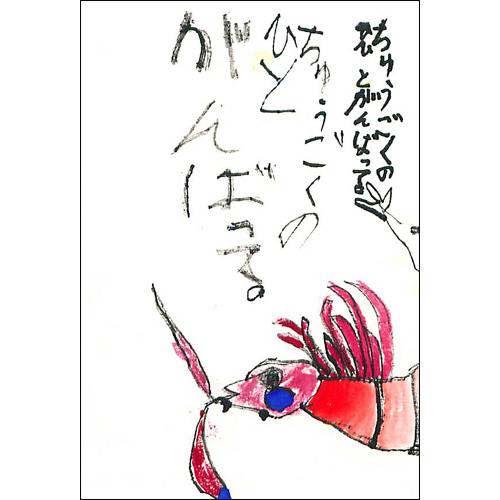 ちゅうごくの
ひとがんばってる
ちゅうごくの
ひと
がんばってる。